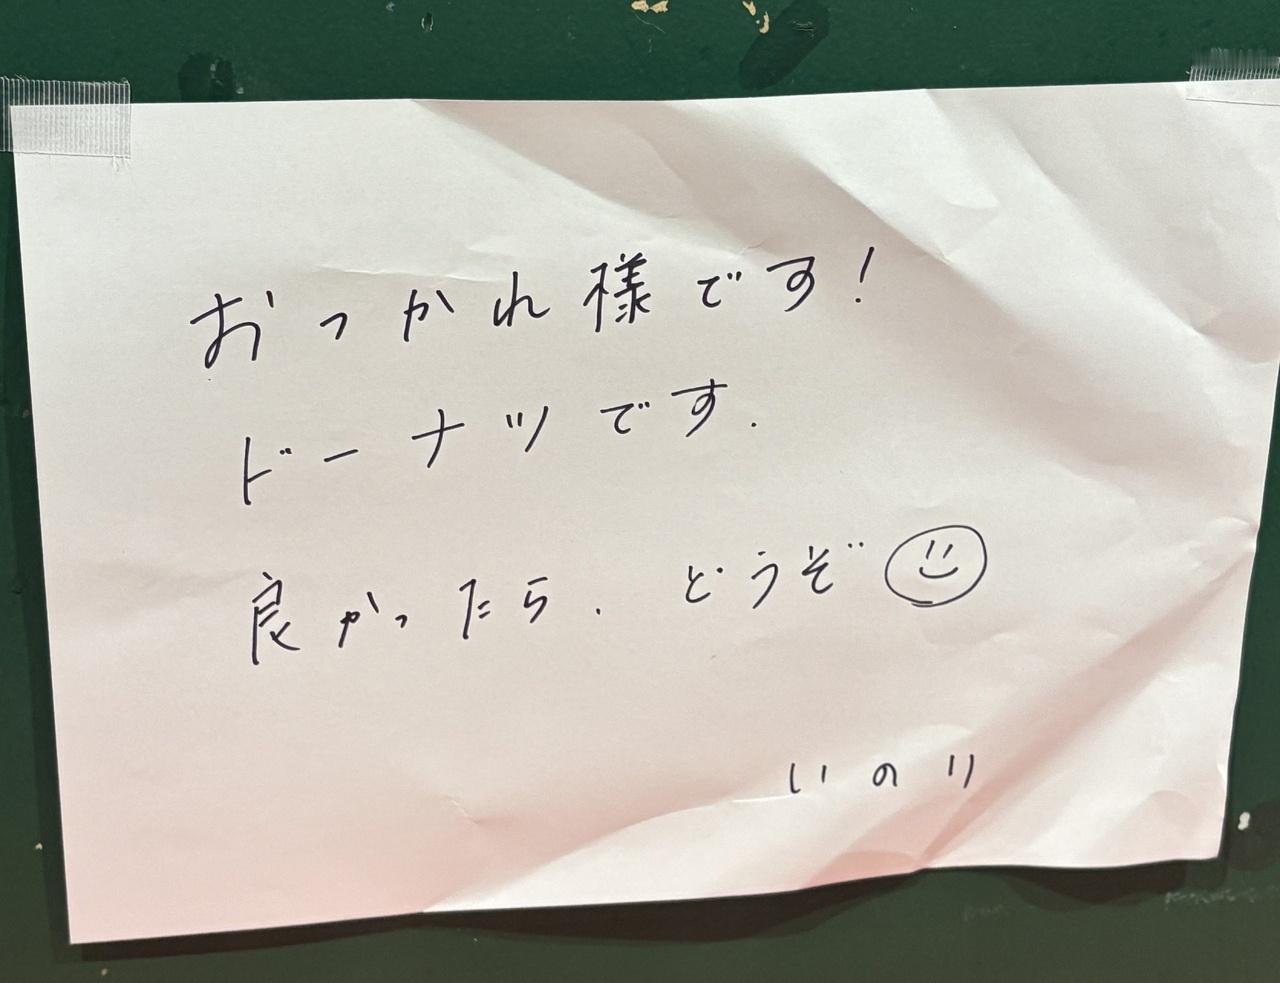 おつかれ様です!
ドーナツです.
良かったら. どうぞ☺
いのり